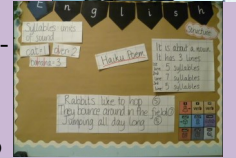 English
Syllables: units
of sound
cat=1 open=2
banana=3
Haiku Poem
Structure
It is about a noun.
It has 3 lines
5 syllables
7 syllables
5 syllables
Rabbits like to hop
They bounce around in the field
Jumping all day long